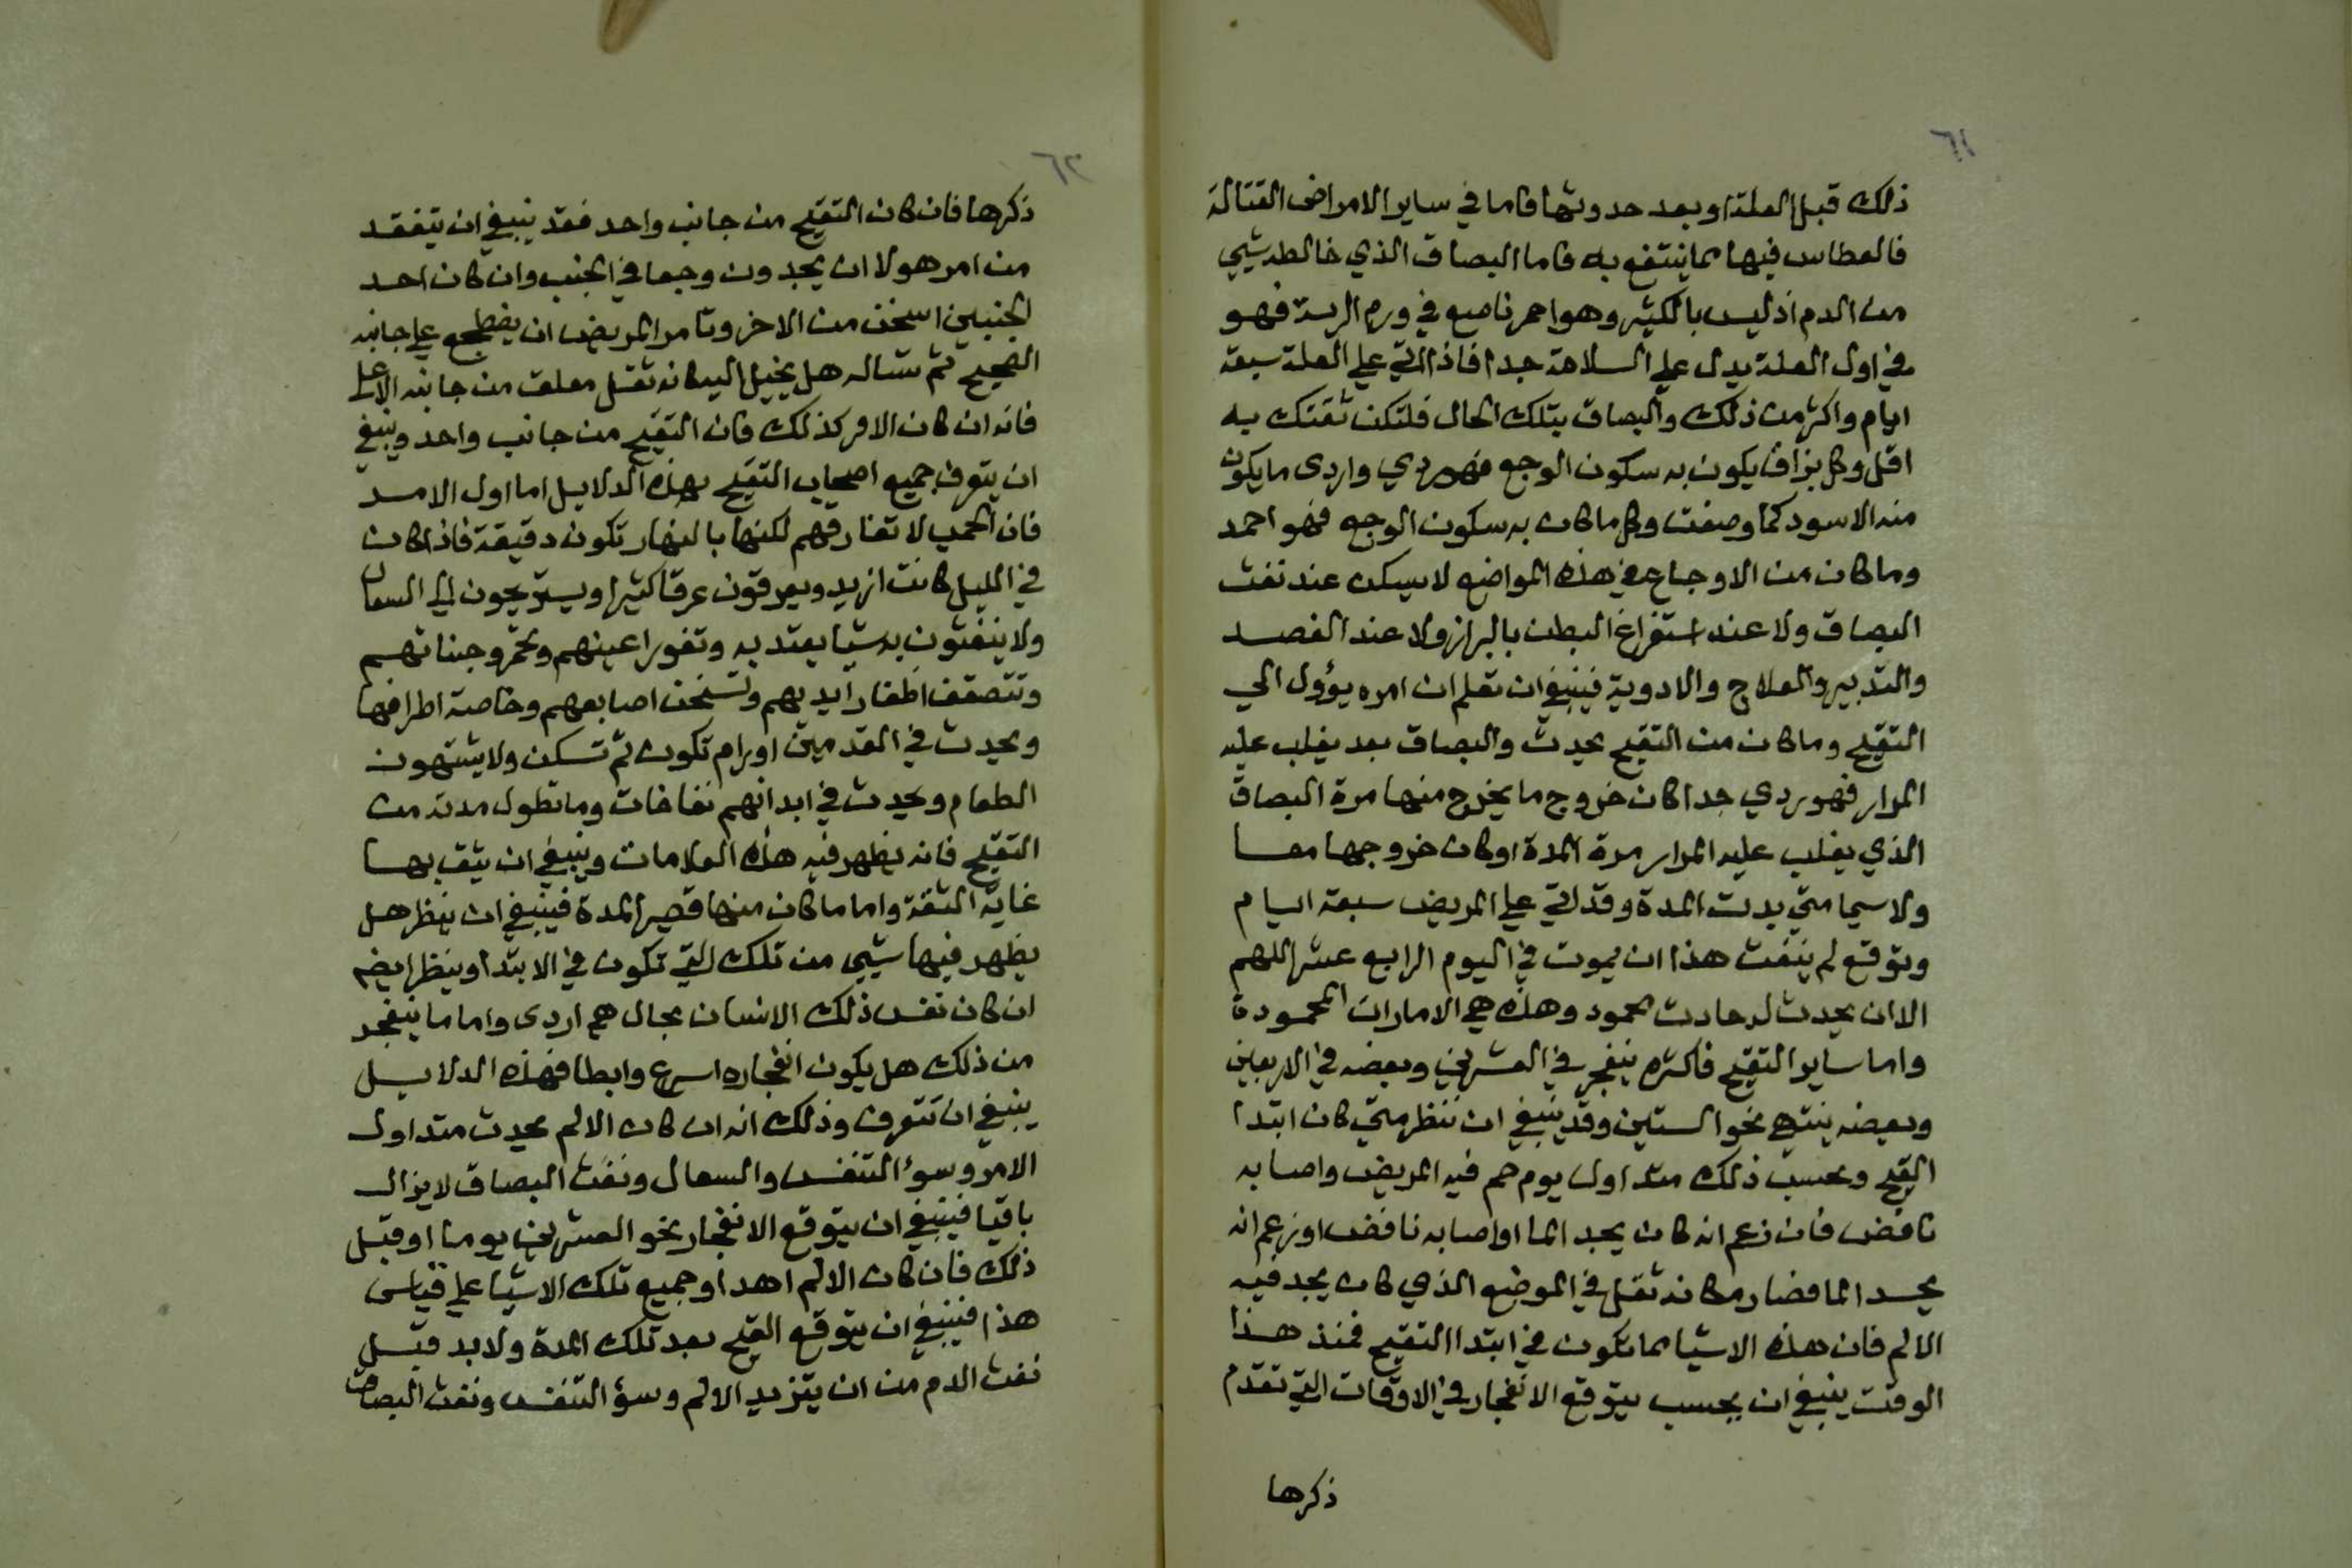 ٦١
ذلك قبل العلة او بعد حدوثها فاما في ساير الامراض القتالة
فالعطاس فيها مما ينتفع به فاما البصاق الذي خالطه شيي
من الدم اذ ليس بالكثير وهو احمر ناصع في ورم الرية فهو
في اول العلة يدل علي السلامة جدا فاذا اتي علي العلة سبعة
ايام واكثر من ذلك والبصاق بتلك الحال فلتكن ثقتك به
اقل وكل بزاق يكون به سكون الوجع فهو ردي واردى ما يكون
منه الاسود كما وصفت وكل ما كان به سكون الوجع فهو احمد
وما كان من الاوجاع في هذه المواضع لا يسكن عند نفث
البصاق ولا عند استفراغ البطن بالبراز ولا عند الفصد
والتدبير والعلاج والادوية فينبغي ان تعلم ان امره يؤول الي
التقيح وما كان من التقيح يحدث والبصاق بعد يغلب عليه
المرار فهو ردي جدا كان خروج ما يخرج منها مرة البصاق
الذي يغلب عليه المرار مرة المدة او كان خروجها معا
ولا سيما متي بدت المدة وقد اتي علي المريض سبعة ايام
وتوقع لم ينفث هذا ان يموت في اليوم الرابع عشر اللهم
الا ان يحدث له حادث محمود وهذه هي الامارات المحمودة
واما ساير التقيح فاكثره ينفجر في العشرين وبعضه في الاربعين
وبعضه ينتهي نحو الستين وقد ينبغي ان ننظر متي كان ابتدا
القيح وبحسب ذلك منذ اول يوم حم فيه المريض واصابه
نافض فان زعم انه كان يجد الما او اصابه نافض او زعم انه
يجد الما فصار مكانه ثقل في الموضع الذي كان يجد فيه
الالم فان هذه الاشيا مما تكون في ابتدا التقيح فمنذ هذا
الوقت ينبغي ان يحسب يتوقع الانفجار في الاوقات التي تقدم
ذكرها
٦٢
ذكرها فان كان التقيح من جانب واحد فقد ينبغي ان يتفقد
من امر هولا ان يجدون وجعا في الجنب وان كان احد
الجنبين اسخن من الاخر وتامر المريض ان يضطجع علي جانبه
الصحيح ثم تساله هل يخيل اليه كانه ثقل معلق من جانبه الاعلي
فانه ان كان الامر كذلك فان التقيح من جانب واحد وينبغي
ان يتعرف جميع اصحاب التقيح بهذه الدلايل اما اول الامر
فان الحمي لا تفارقهم لكنها بالنهار تكون دقيقة فاذا كان
في الليل كانت ازيد ويعرقون عرقا كثيرا ويستريحون الي السعال
ولا ينفثون به شيا يعتد به وتغور اعينهم وتحمر وجناتهم
وتتصقف اظفار ايديهم وتسخن اصابعهم وخاصة اطرافها
ويحدث في القدمين اورام تكون ثم تسكن ولا يشتهون
الطعام ويحدث في ابدانهم نفاخات وما تطول مدته من
التقيح فانه يظهر فيه هذه العلامات وينبغي ان يثق بها
غاية الثقة واما ما كان منها قصير المدة فينبغي ان ينظر هل
يظهر فيها شيي من تلك التي تكون في الابتدا وينظر ايضا
ان كان نفس ذلك الانسان بحال هي اردى واما ما ينفجر
من ذلك هل يكون انفجاره اسرع وابطا فهذه الدلايل
ينبغي ان تتعرف وذلك انه ان كان الالم يحدث منذ اول
الامر وسوء التنفس والسعال ونفث البصاق لا يزال
باقيا فينبغي ان يتوقع الانفجار نحو العشرين يوما او قبل
ذلك فان كان الالم اهدا وجميع تلك الاشيا علي قياس
هذا فينبغي ان يتوقع القيح بعد تلك المدة ولا بد قبل
نفث الدم من ان يتزيد الالم وسوء التنفس ونفث البصاق